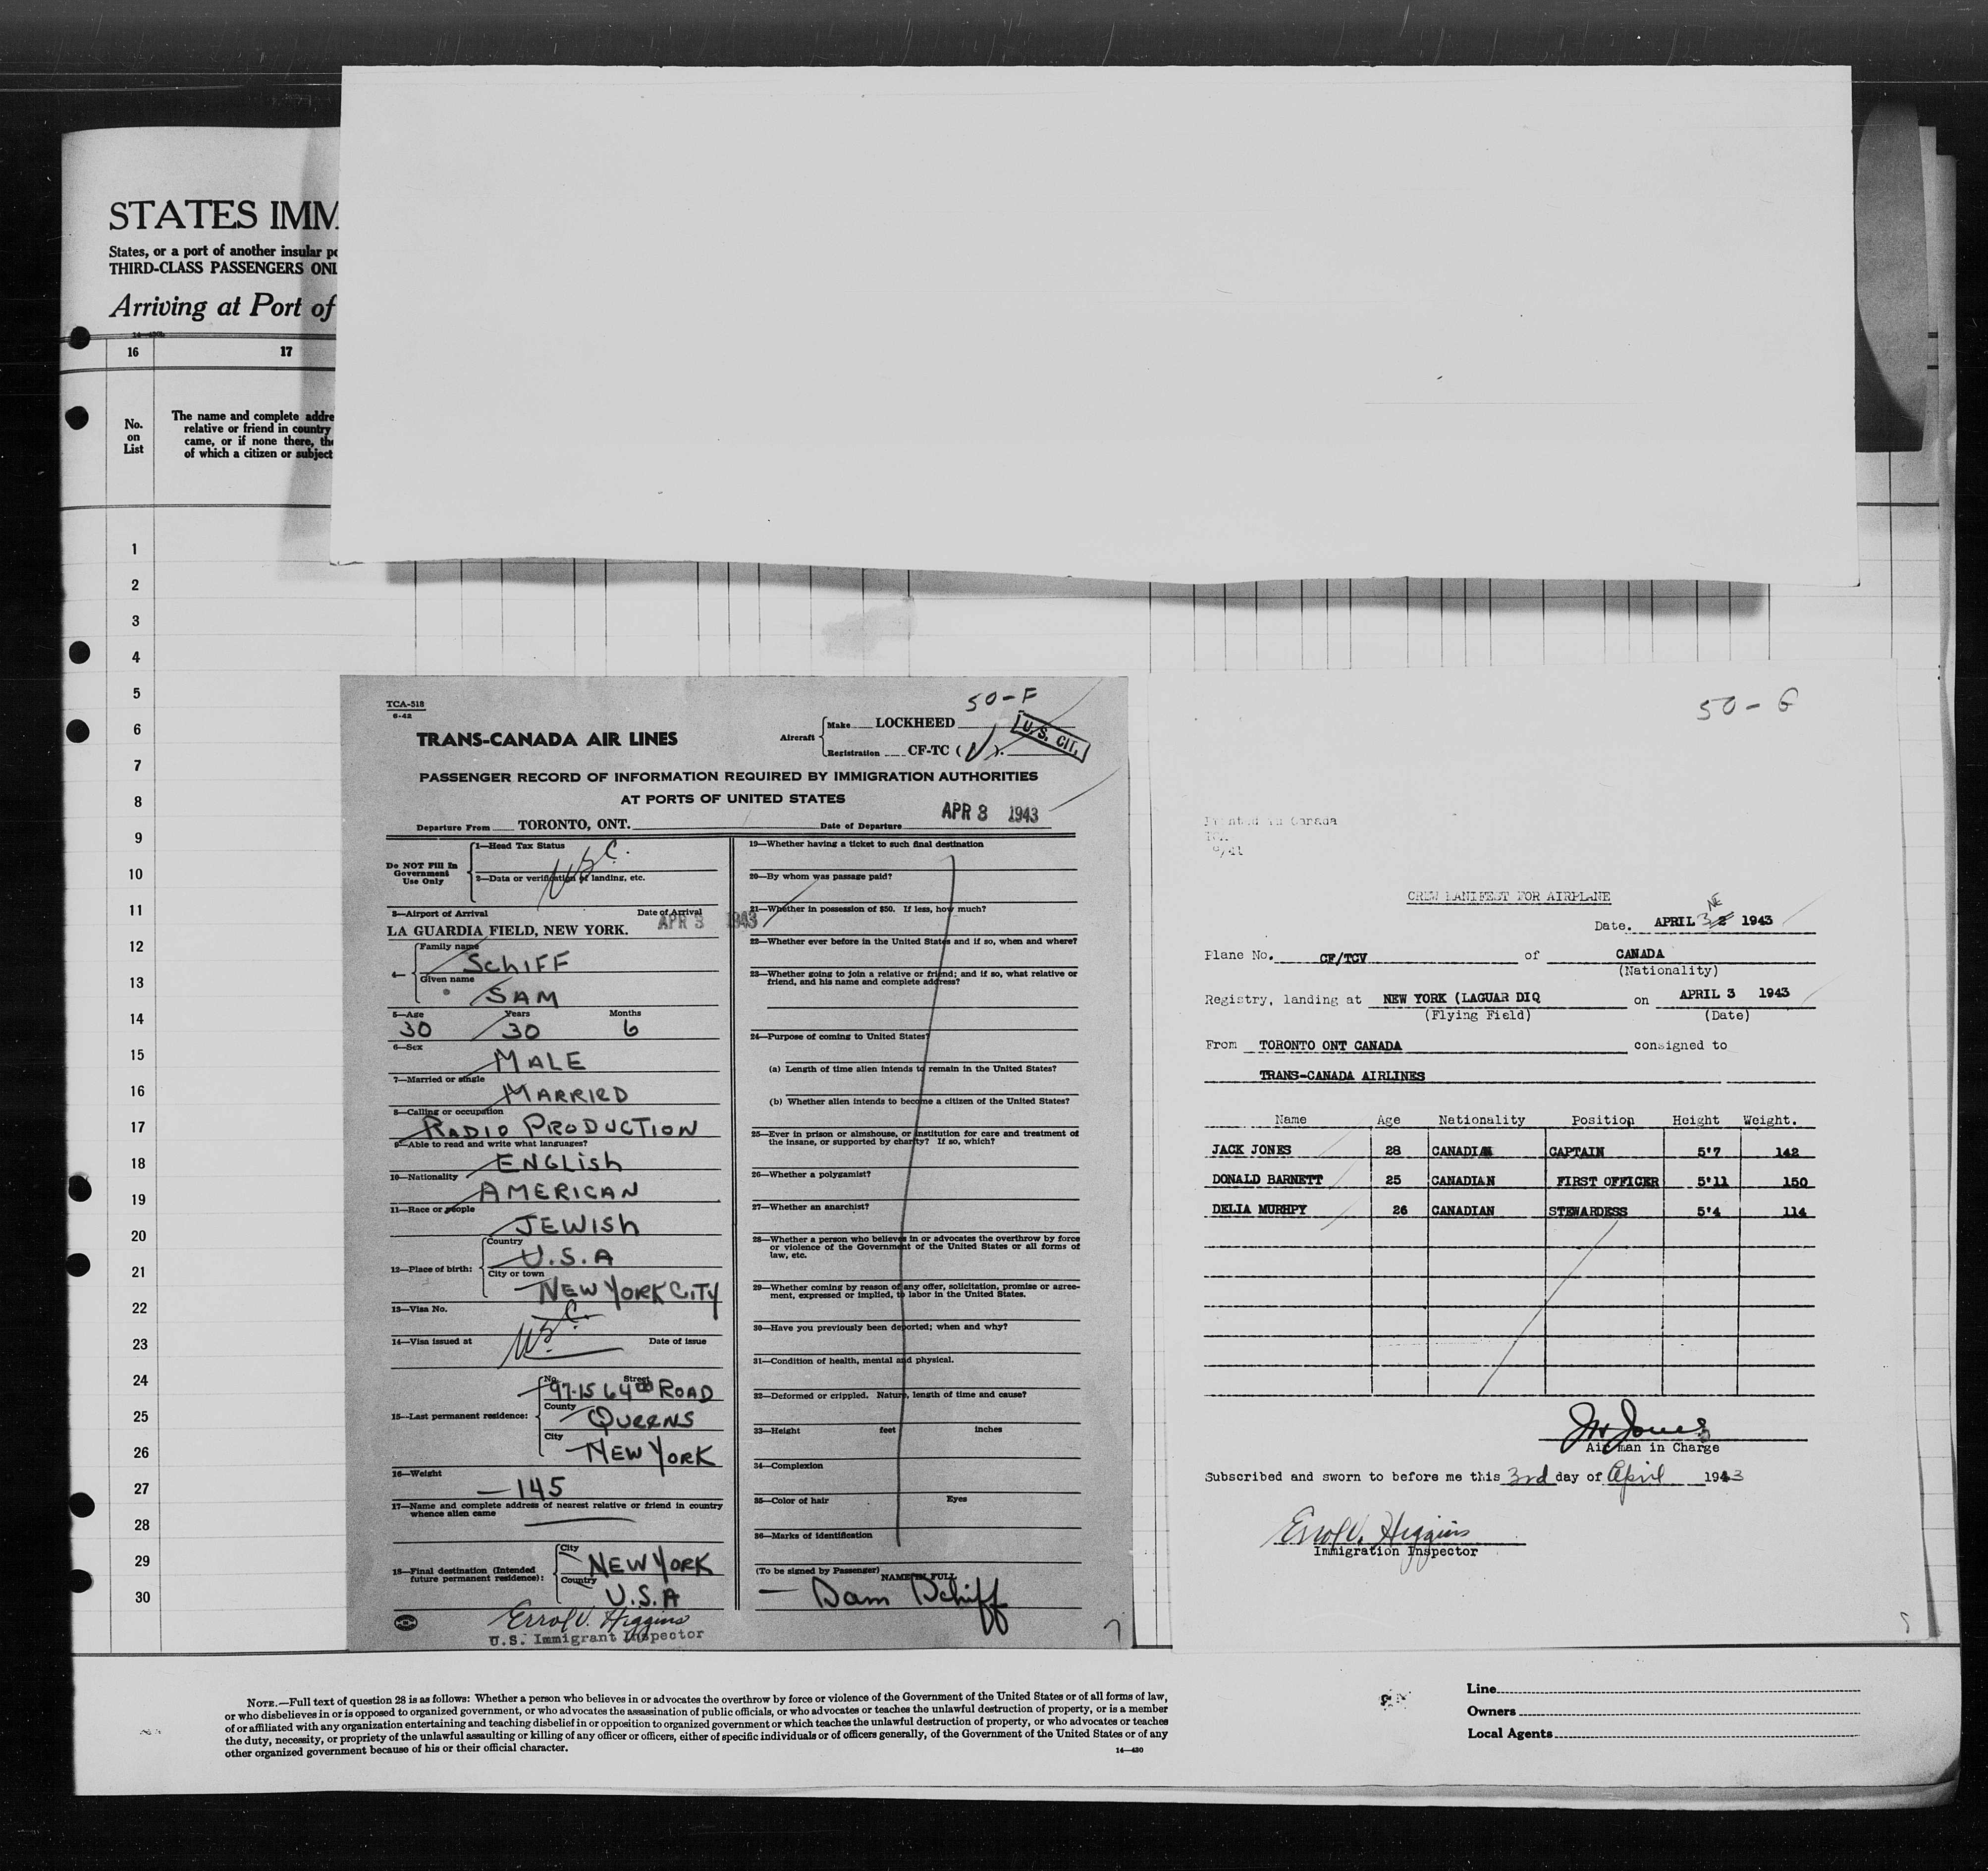 STATES IMM
States, or a port of another insular po
THIRD-CLASS PASSENGERS ONL
Arriving at Port of
16 17
No.
on
List
The name and complete addre
relative or friend in country
came, or if none there, the
of which a citizen or subject
1
2
3
4
5
6
7
8
9
10
11
12
13
14
15
16
17
18
19
20
21
22
23
24
25
26
27
28
29
30
TCA-518
6-42
50-F
TRANS-CANADA AIR LINES
Aircraft
Make LOCKHEED
Registration CF-TC (V).
U.S. CIT.
PASSENGER RECORD OF INFORMATION REQUIRED BY IMMIGRATION AUTHORITIES
AT PORTS OF UNITED STATES
Departure From TORONTO, ONT. Date of Departure APR 3 1943
Do NOT Fill In
Government
Use Only
1—Head Tax Status
USC.
2—Data or verification of landing, etc.
3—Airport of Arrival Date of Arrival
LA GUARDIA FIELD, NEW YORK. APR 3 1943
4— Family name
SCHIFF
Given name
SAM
5—Age Years Months
30 30 6
6—Sex
MALE
7—Married or single
MARRIED
8—Calling or occupation
RADIO PRODUCTION
9—Able to read and write what languages?
ENGLISH
10—Nationality
AMERICAN
11—Race or people
JEWISH
12—Place of birth:
Country
U.S.A
City or town
NEW YORK CITY
13—Visa No.
USC.
14—Visa issued at Date of issue
15—Last permanent residence:
No. Street
97-15 64th ROAD
County
QUEENS
City
NEW YORK
16—Weight
145
17—Name and complete address of nearest relative or friend in country
whence alien came
18—Final destination (Intended
future permanent residence):
City
NEW YORK
Country
U.S.A
Errol V. Higgins
U.S. Immigrant Inspector
19—Whether having a ticket to such final destination
20—By whom was passage paid?
21—Whether in possession of $50. If less, how much?
22—Whether ever before in the United States and if so, when and where?
23—Whether going to join a relative or friend; and if so, what relative or
friend, and his name and complete address?
24—Purpose of coming to United States?
(a) Length of time alien intends to remain in the United States?
(b) Whether alien intends to become a citizen of the United States?
25—Ever in prison or almshouse, or institution for care and treatment of
the insane, or supported by charity? If so, which?
26—Whether a polygamist?
27—Whether an anarchist?
28—Whether a person who believes in or advocates the overthrow by force
or violence of the Government of the United States or all forms of
law, etc.
29—Whether coming by reason of any offer, solicitation, promise or agree-
ment, expressed or implied, to labor in the United States.
30—Have you previously been deported; when and why?
31—Condition of health, mental and physical.
32—Deformed or crippled. Nature, length of time and cause?
33—Height feet inches
34—Complexion
35—Color of hair Eyes
36—Marks of identification
(To be signed by Passenger) NAME IN FULL
Sam Schiff
50-G
Printed in Canada
CREW MANIFEST FOR AIRPLANE
NE
Date. APRIL 3 2 1943
Plane No. CF/TCV of CANADA
(Nationality)
Registry, landing at NEW YORK (LAGUAR DIQ on APRIL 3 1943
(Flying Field) (Date)
From TORONTO ONT CANADA consigned to
TRANS-CANADA AIRLINES
Name Age Nationality Position Height Weight.
JACK JONES 28 CANADIAN CAPTAIN 5'7 142
DONALD BARNETT 25 CANADIAN FIRST OFFICER 5'11 150
DELIA MURHPY 26 CANADIAN STEWARDESS 5'4 114
JW Jones
Airman in Charge
Subscribed and sworn to before me this 3rd day of April 1943
Errol V. Higgins
Immigration Inspector
NOTE.—Full text of question 28 is as follows: Whether a person who believes in or advocates the overthrow by force or violence of the Government of the United States or of all forms of law,
or who disbelieves in or is opposed to organized government, or who advocates the assassination of public officials, or who advocates or teaches the unlawful destruction of property, or is a member
of or affiliated with any organization entertaining and teaching disbelief in or opposition to organized government or which teaches the unlawful destruction of property, or who advocates or teaches
the duty, necessity, or propriety of the unlawful assaulting or killing of any officer or officers, either of specific individuals or of officers generally, of the Government of the United States or of any
other organized government because of his or their official character.
14—430
Line
Owners
Local Agents